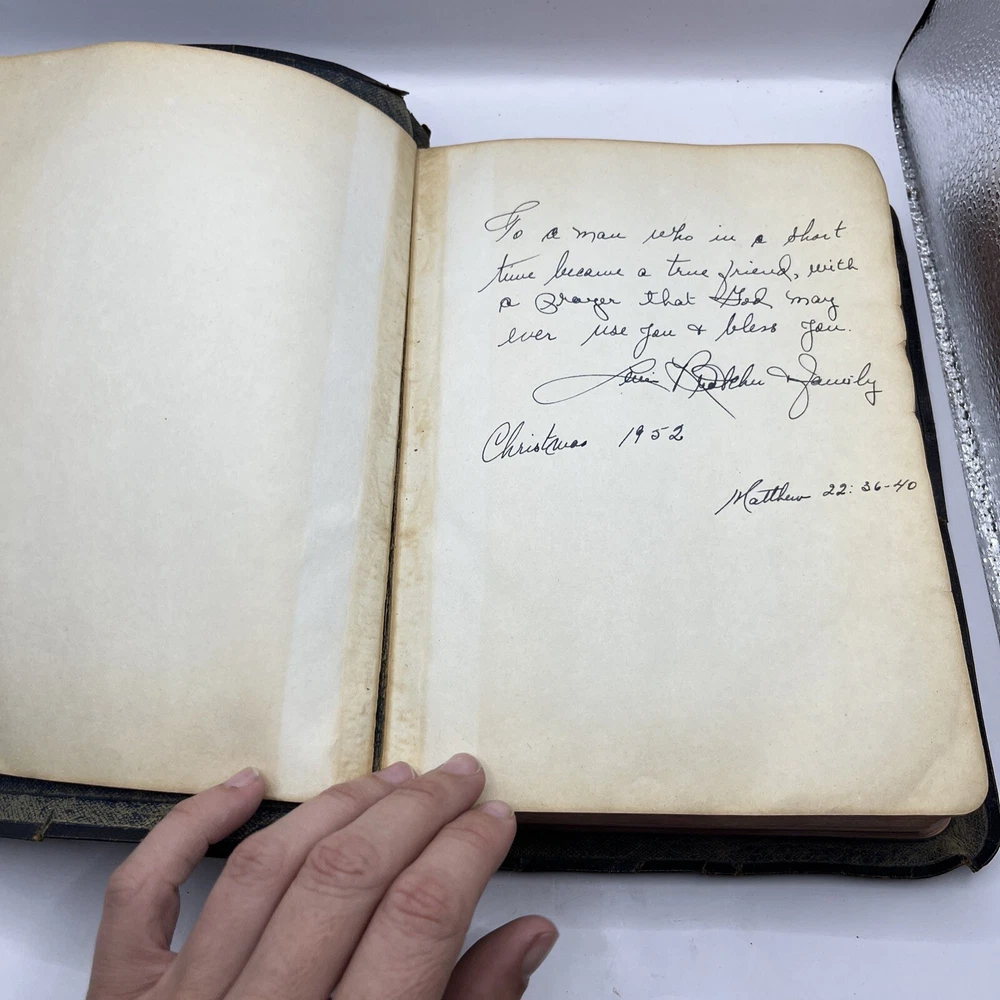 To a man who in a short
time became a true friend, with
a prayer that God may
ever use you & bless you.
& Family
Christmas 1952
Matthew 22:36-40